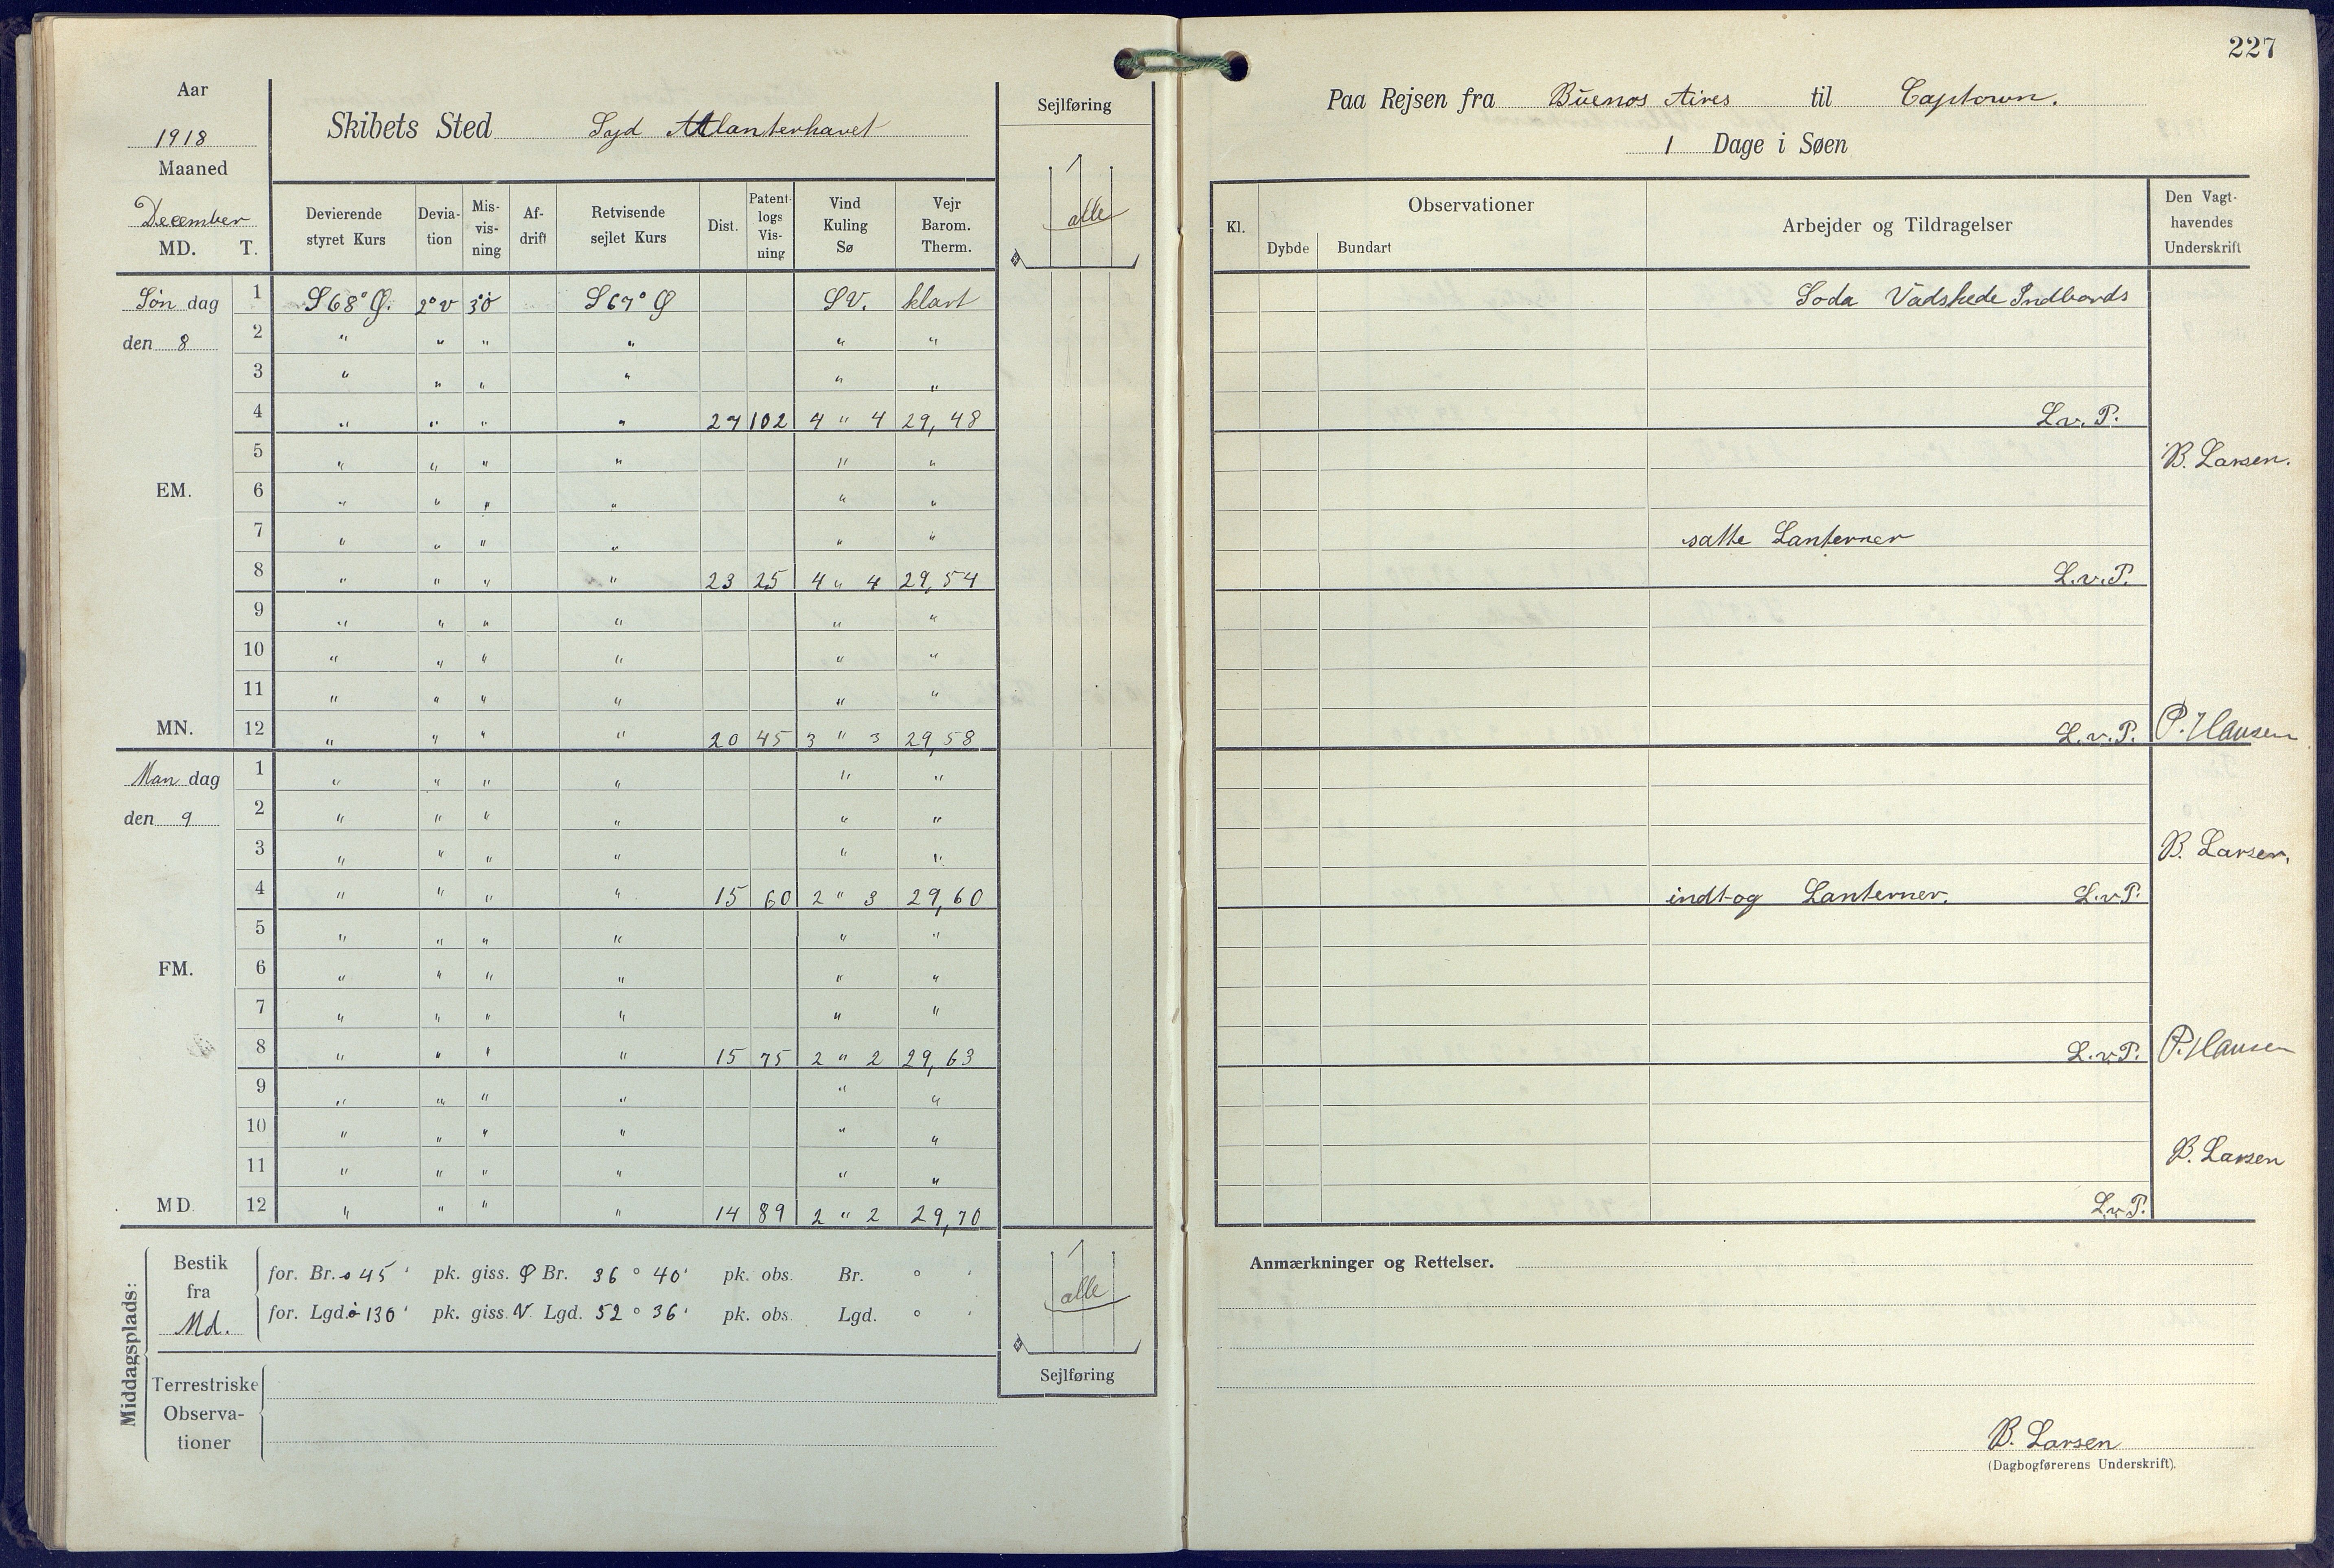 227
Aar
1918
Maaned
December
MD. T.
Skibets Sted Syd Atlanterhavet
Sejlføring
Paa Rejsen fra Buenos Aires til Captown.
1 Dage i Søen
Devierende styret Kurs | Devia-tion | Mis-vis-ning | Af-drift | Retvisende sejlet Kurs | Dist. | Patent-logs Vis-ning | Vind Kuling Sø | Vejr Barom. Therm.
Kl. | Observationer | Dybde | Bundart | Arbejder og Tildragelser | Den Vagt-havendes Underskrift
alle
Søn dag 1 S68°Ø. 2°V S67°Ø SV. klart Soda Vadskede Indbords
den 8 2 " " " " " "
3 " " " " " "
4 " " " " 27 102 4 " 4 29,48 L.v.P.
5 " " " " " " B. Larsen.
EM. 6 " " " " " "
7 " " " " " " satte Lanterner
8 " " " " 23 25 4 " 4 29,54 L.v.P.
9 " " " " " "
10 " " " " " "
11 " " " " " "
MN. 12 " " " " 20 45 3 " 3 29,58 L.v.P. P. Hansen
Man dag 1 " " " " " "
den 9 2 " " " " " "
3 " " " " " " B. Larsen.
4 " " " " 15 60 2 " 3 29,60 indtog Lanterner. L.v.P.
5 " " " " " "
FM. 6 " " " " " "
7 " " " " " "
8 " " " " 15 75 2 " 2 29,63 L.v.P. P. Hansen
9 " " " " " "
10 " " " " " "
11 " " " " " " B. Larsen
MD. 12 " " " " 14 89 2 " 2 29,70 L.v.P.
Middagsplads:
Bestik fra Md.
for. Br. 45' pk. giss. Br. 36° 40' pk. obs. Br. ° '
for. Lgd. 130' pk. giss. V Lgd. 52° 36' pk. obs. Lgd. ° '
alle
Sejlføring
Terrestriske
Observa-
tioner
Anmærkninger og Rettelser.
B. Larsen
(Dagbogførerens Underskrift).